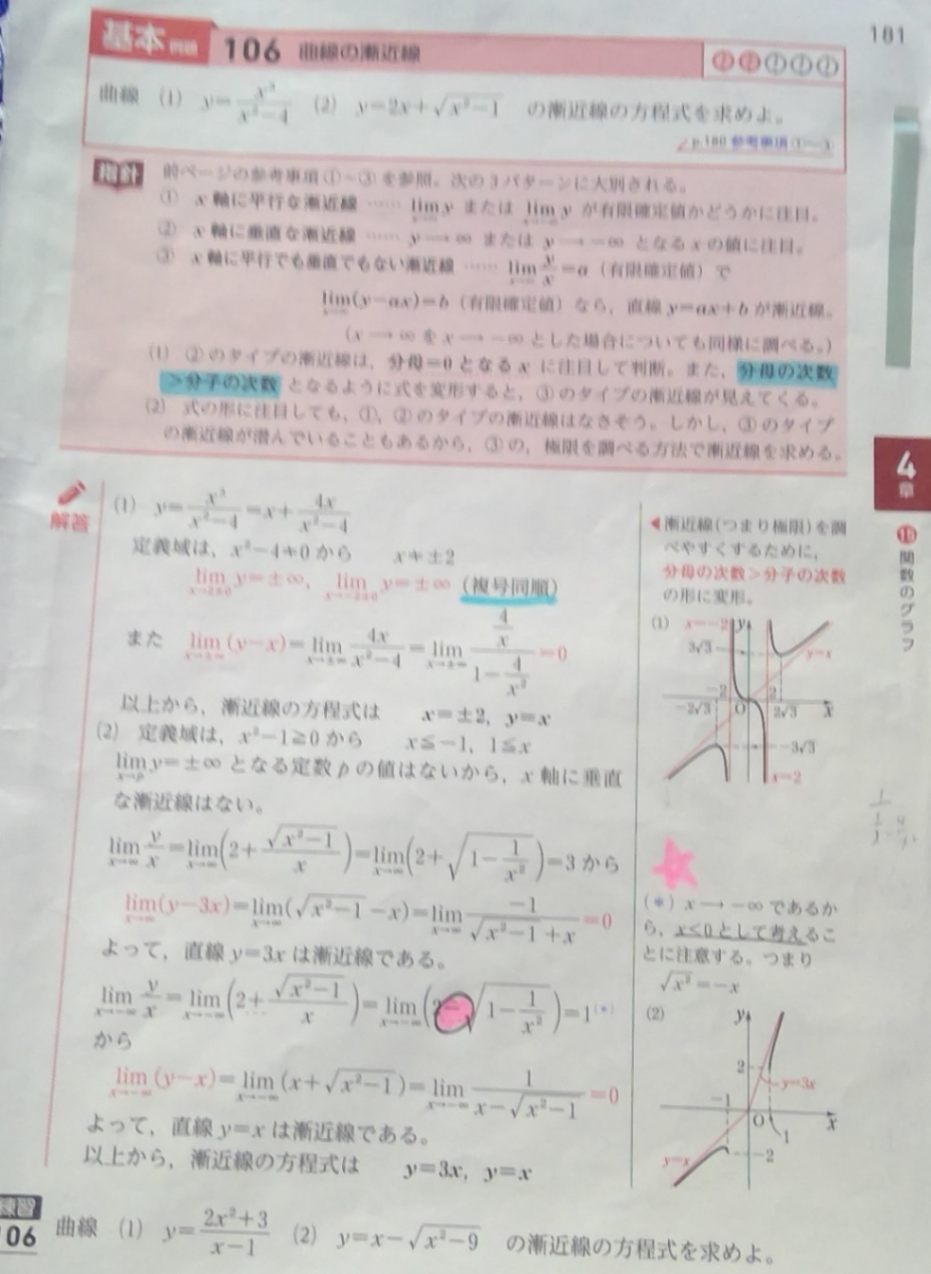 181
基本 例題 106 曲線の漸近線
曲線 (1) y=x³/(x²−4) (2) y=2x+√(x²−1) の漸近線の方程式を求めよ。
p.180 参考事項 ①〜③
指針 前ページの参考事項①〜③を参照。次の3パターンに大別される。
① x軸に平行な漸近線 …… lim[x→∞] y または lim[x→−∞] y が有限確定値かどうかに注目。
② x軸に垂直な漸近線 …… y→∞ または y→−∞ となるxの値に注目。
③ x軸に平行でも垂直でもない漸近線 …… lim[x→∞] y/x=a(有限確定値)で
lim[x→∞](y−ax)=b(有限確定値)なら,直線 y=ax+b が漸近線。
(x→∞ を x→−∞ とした場合についても同様に調べる。)
(1) ②のタイプの漸近線は,分母=0となるxに注目して判断。また,分母の次数
>分子の次数 となるように式を変形すると,③のタイプの漸近線が見えてくる。
(2) 式の形に注目しても,①,②のタイプの漸近線はなさそう。しかし,③のタイプ
の漸近線が潜んでいることもあるから,③の,極限を調べる方法で漸近線を求める。
4
章
関数のグラフ
解答
(1) y=x³/(x²−4)=x+4x/(x²−4)
定義域は,x²−4≠0から x≠±2
lim[x→2±0] y=±∞, lim[x→−2±0] y=±∞ (複号同順)
また lim[x→±∞](y−x)=lim[x→±∞] 4x/(x²−4)=lim[x→±∞] (4/x)/(1−4/x²)=0
以上から,漸近線の方程式は x=±2, y=x
(2) 定義域は,x²−1≧0から x≦−1, 1≦x
lim[x→p] y=±∞ となる定数pの値はないから,x軸に垂直
な漸近線はない。
lim[x→∞] y/x=lim[x→∞](2+√(x²−1)/x)=lim[x→∞](2+√(1−1/x²))=3 から
lim[x→∞](y−3x)=lim[x→∞](√(x²−1)−x)=lim[x→∞] −1/(√(x²−1)+x)=0
よって,直線 y=3x は漸近線である。
lim[x→−∞] y/x=lim[x→−∞](2+√(x²−1)/x)=lim[x→−∞](2−√(1−1/x²))=1(*)
から
lim[x→−∞](y−x)=lim[x→−∞](x+√(x²−1))=lim[x→−∞] 1/(x−√(x²−1))=0
よって,直線 y=x は漸近線である。
以上から,漸近線の方程式は y=3x, y=x
◀漸近線(つまり極限)を調
べやすくするために,
分母の次数>分子の次数
の形に変形。
(1) x=−2 y
3√3 y=x
−2 2
−2√3 O 2√3 x
−3√3
x=2
(*) x→−∞ であるか
ら,x<0として考えるこ
とに注意する。つまり
√x²=−x
(2) y
2 y=3x
−1 O 1 x
y=x −2
練習
106 曲線 (1) y=(2x²+3)/(x−1) (2) y=x−√(x²−9) の漸近線の方程式を求めよ。